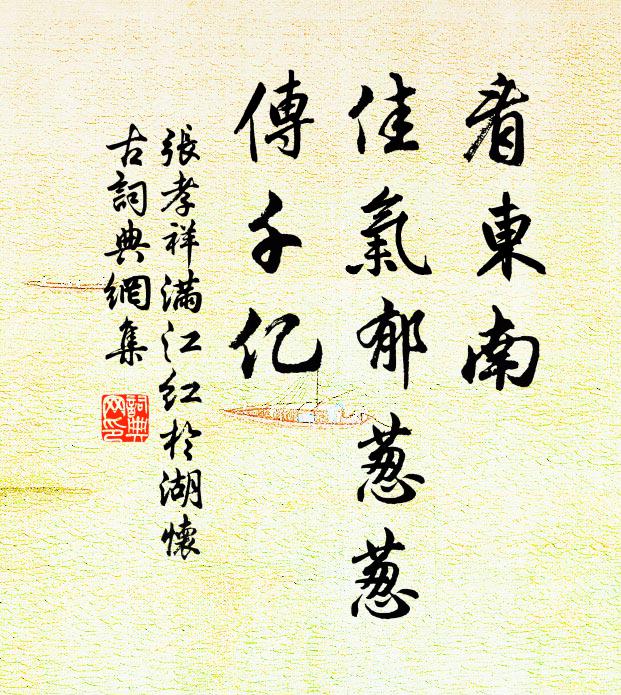 看東南
佳氣郁葱葱
傳千亿
張孝祥滿江紅於湖懷
古詞典網集
詞典
网印